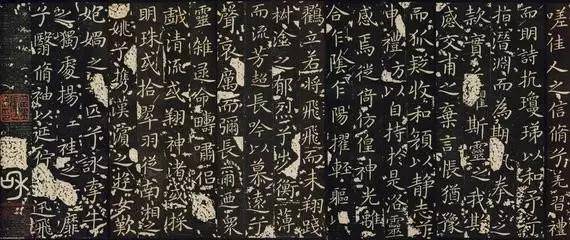 嗟佳人之信脩兮羌習禮
而明詩抗瓊珶以和予兮
指潛淵而為期拳之
款實斯靈之我欺
感交甫之棄言悵猶豫
而狐疑收和顏以靜志兮
申禮防以自持於是洛靈
感焉徙倚彷徨神光離
合乍陰乍陽擢輕軀以
鶴立若將飛飛而未翔踐
椒塗之郁烈兮步衡薄
而流芳超長吟以慕遠兮
聲哀厲而彌長爾乃衆
靈雜遝命疇嘯侶
戲清流或翔神渚或採
明珠或拾翠羽從南湘之
姚兮攜漢濱之遊女歎
妃媧之匹兮詠牽牛
之獨處揚袿之靡
兮翳脩袖以延佇迅飛